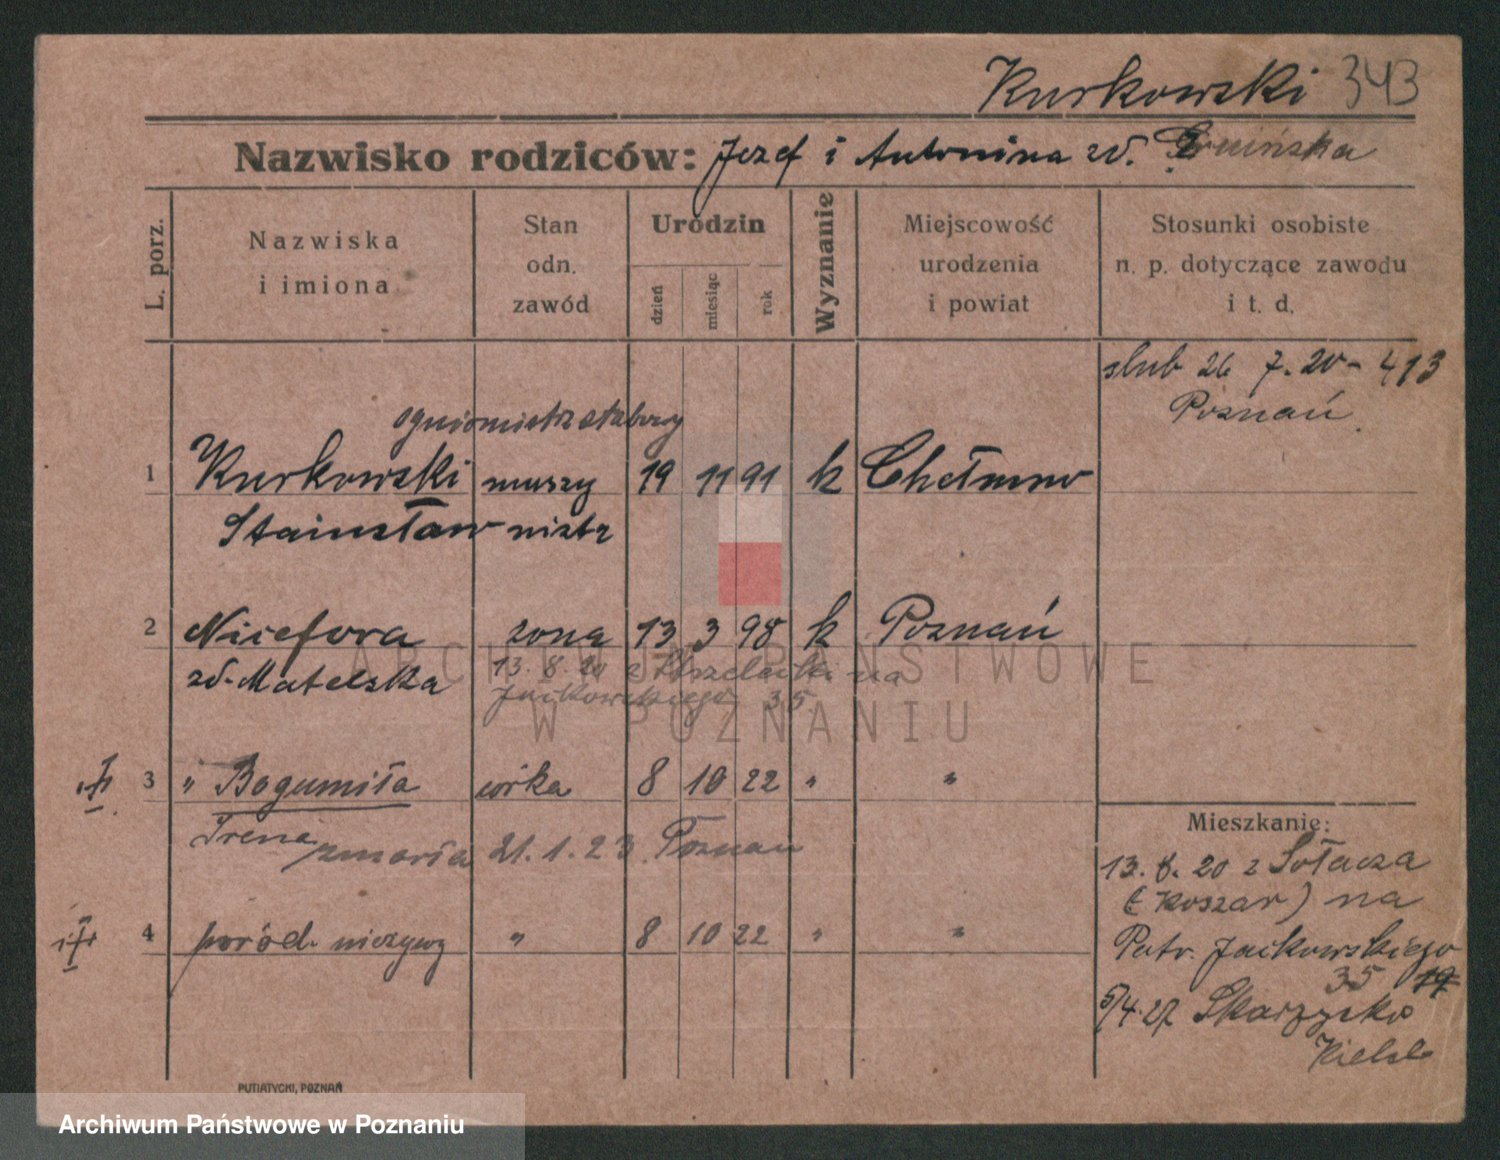 Kurkowski 343
Nazwisko rodziców: Jozef i Antonina zd.
L. porz.
Nazwiska
i imiona
Stan
odn.
zawód
Urodzin
dzień
miesiąc
rok
Wyznanie
Miejscowość
urodzenia
i powiat
Stosunki osobiste
n. p. dotyczące zawodu
i t. d.
slub 26 7. 20 - 413
Poznań
ogniomistrz sztabowy
1 Kurkowski muszy 19 11 91 k Chełmno
Stanisław mistz
2 Nicefora zona 13 3 98 k Poznań
zd. Matelska 13. 8. 20 z na
Jackowskiego 35.
3 " Bogumiła córka 8 10 22 " "
Irena zmarła 21. 1. 23 Poznan
4 poród. nieżywy " 8 10 22 " "
Mieszkanie:
13. 8. 20 z Sołacza
(z Koszar) na
Patr. Jackowskiego
35
5/4.27 Skarzysko
PUTIATYCKI, POZNAŃ
ARCHIWUM PAŃSTWOWE
W POZNANIU
Archiwum Państwowe w Poznaniu